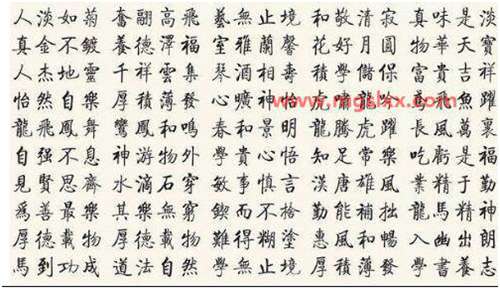 人淡如菊 奮翮高飛 藝無止境 和敬清寂 真味是淡
真金不鍍 養德澤福 室雅蘭馨 花好月圓 物華天寶
人杰地靈 千祥雲集 琴酒相壽 積學儲 富貴吉祥
怡然自樂 厚積薄發 心曠神怡 虎嘯 魚躍
www.mgslxx.com
龍飛鳳舞 鸞鳳和鳴 春和景明 龍騰虎躍 長風萬裏
自强不息 神游物外 學貴心悟 知足常樂 吃虧是福
見賢思齊 水滴石穿 敏事慎言 漢唐雄風 業精于勤
爲善最樂 其樂無窮 鍥而不捨 勤能補拙 龍馬精神
厚德載物 厚德載物 難得糊塗 惠風和暢 入幽出朗
馬到功成 道法自然 學無止境 厚積薄發 學書養志